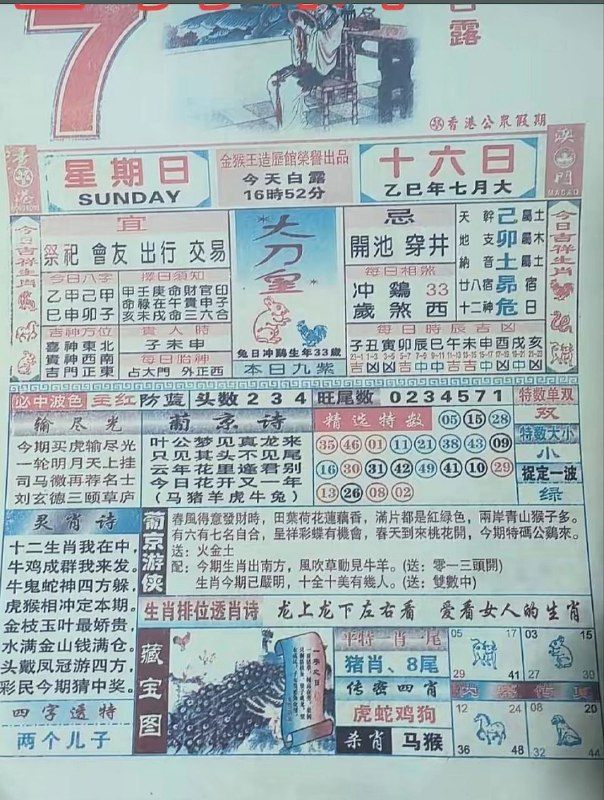 7
白露
香港公眾假期
香港
星期日
SUNDAY
金猴王造歷館榮譽出品
今天白露
16時52分
十六日
乙巳年七月大
澳門
MACAO
今日吉祥生肖
宜
祭祀 會友 出行 交易
今日八字
乙甲己甲
巳申卯子
擇日須知
甲壬庚命財官印
命祿在午貴申子
亥未戌命三六合
吉神方位
喜神東北
貴神西南
吉門正東
貴人時
子未申
每日胎神
占大門 外正西
大刀皇
兔日冲鷄生年33歲
本日九紫
忌
開池 穿井
每日相煞
冲鷄33
歲煞西
天幹己屬土
地支卯屬木
納音土屬土
廿八宿昴宿
十二神危日
每日時辰吉凶
子丑寅卯辰巳午未申酉戌亥
今日吉祥生肖
必中波色 主红 防蓝 头数 2 3 4 旺尾数 0 2 3 4 5 7 1 特数单双
双
特数大小
小
捉定一波
绿
输尽光
今期买虎输尽光
一轮明月天上挂
司马徽再荐名士
刘玄德三顾草庐
葡京诗
叶公梦见真龙来
只见其头不见尾
云年花里逢君别
今日花开又一年
（马猪羊虎牛兔）
精选特数 05 15 28
35 46 01 11 21 38 43 09
16 30 31 42 49 41 10 29
13 26 08 02
灵肖诗
十二生肖我在中，
牛鸡成群我来发。
牛鬼蛇神四方躲，
虎猴相冲定本期。
金枝玉叶最娇贵，
水满金山钱满仓。
头戴凤冠游四方，
彩民今期猜中奖。
四字透特
两个儿子
葡京游侠
春風得意發財時，田葉荷花蓮藕香，滿片都是紅绿色，兩岸青山猴子多。
有六有七名自合，呈祥彩蝶有機會，春天到來桃花開，今期特碼公鷄來。
送：火金土
配：今期生肖出南方，風吹草動見牛羊。(送：零一三頭開)
生肖今期已嚴明，十全十美有幾人。(送：雙數中)
生肖排位透肖诗 龙上龙下左右看 爱看女人的生肖
藏宝图
一字之曰
平特一肖一尾
猪肖、8尾
传密四肖
虎蛇鸡狗
杀肖 马猴
05 17
29 41
03 15
27
12 24
36 48
08 20
32 44